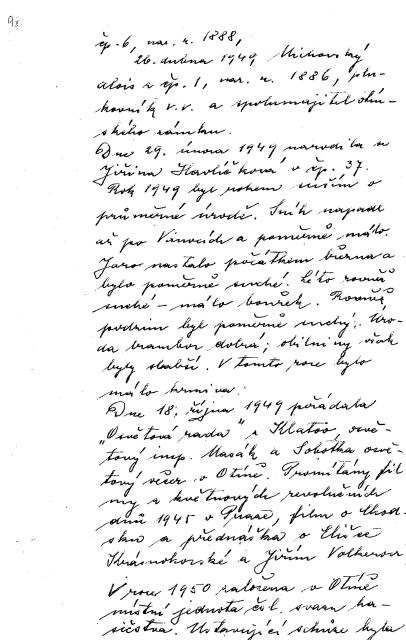 98
čp. 6, nar. r. 1888,
26. dubna 1949 Michovský
Alois z čp. 1, nar. r. 1886, plu-
kovník v.v. a spolumajitel otín-
ského zámku.
Dne 29. února 1949 narodila se
Jiřina Havlíčková v čp. 37.
Rok 1949 byl rokem suším o
průměrné úrodě. Sníh napadl
až po Vánocích a poměrně málo.
Jaro nastalo počátkem března a
bylo poměrně suché. Léto rovněž
suché – málo bouřek. Rovněž
podzim byl poměrně suchý. Úro-
da brambor dobrá; obilniny však
byly slabší. V tomto roce bylo
málo krmiva.
Dne 18. října 1949 pořádala
„Osvětová rada" z Klatov, osvě-
tový insp. Masák a Sobotka osvě-
tový večer v Otíně. Promítány fil
my z květnových revolučních
dnů 1945 v Praze, film o Chod-
sku a přednáška o Elišce
Krásnohorské a Jiřím Volkerovi
V roce 1950 založena v Otíně
místní jednota čsl. svazu ha-
sičstva. Ustavující schůze byla